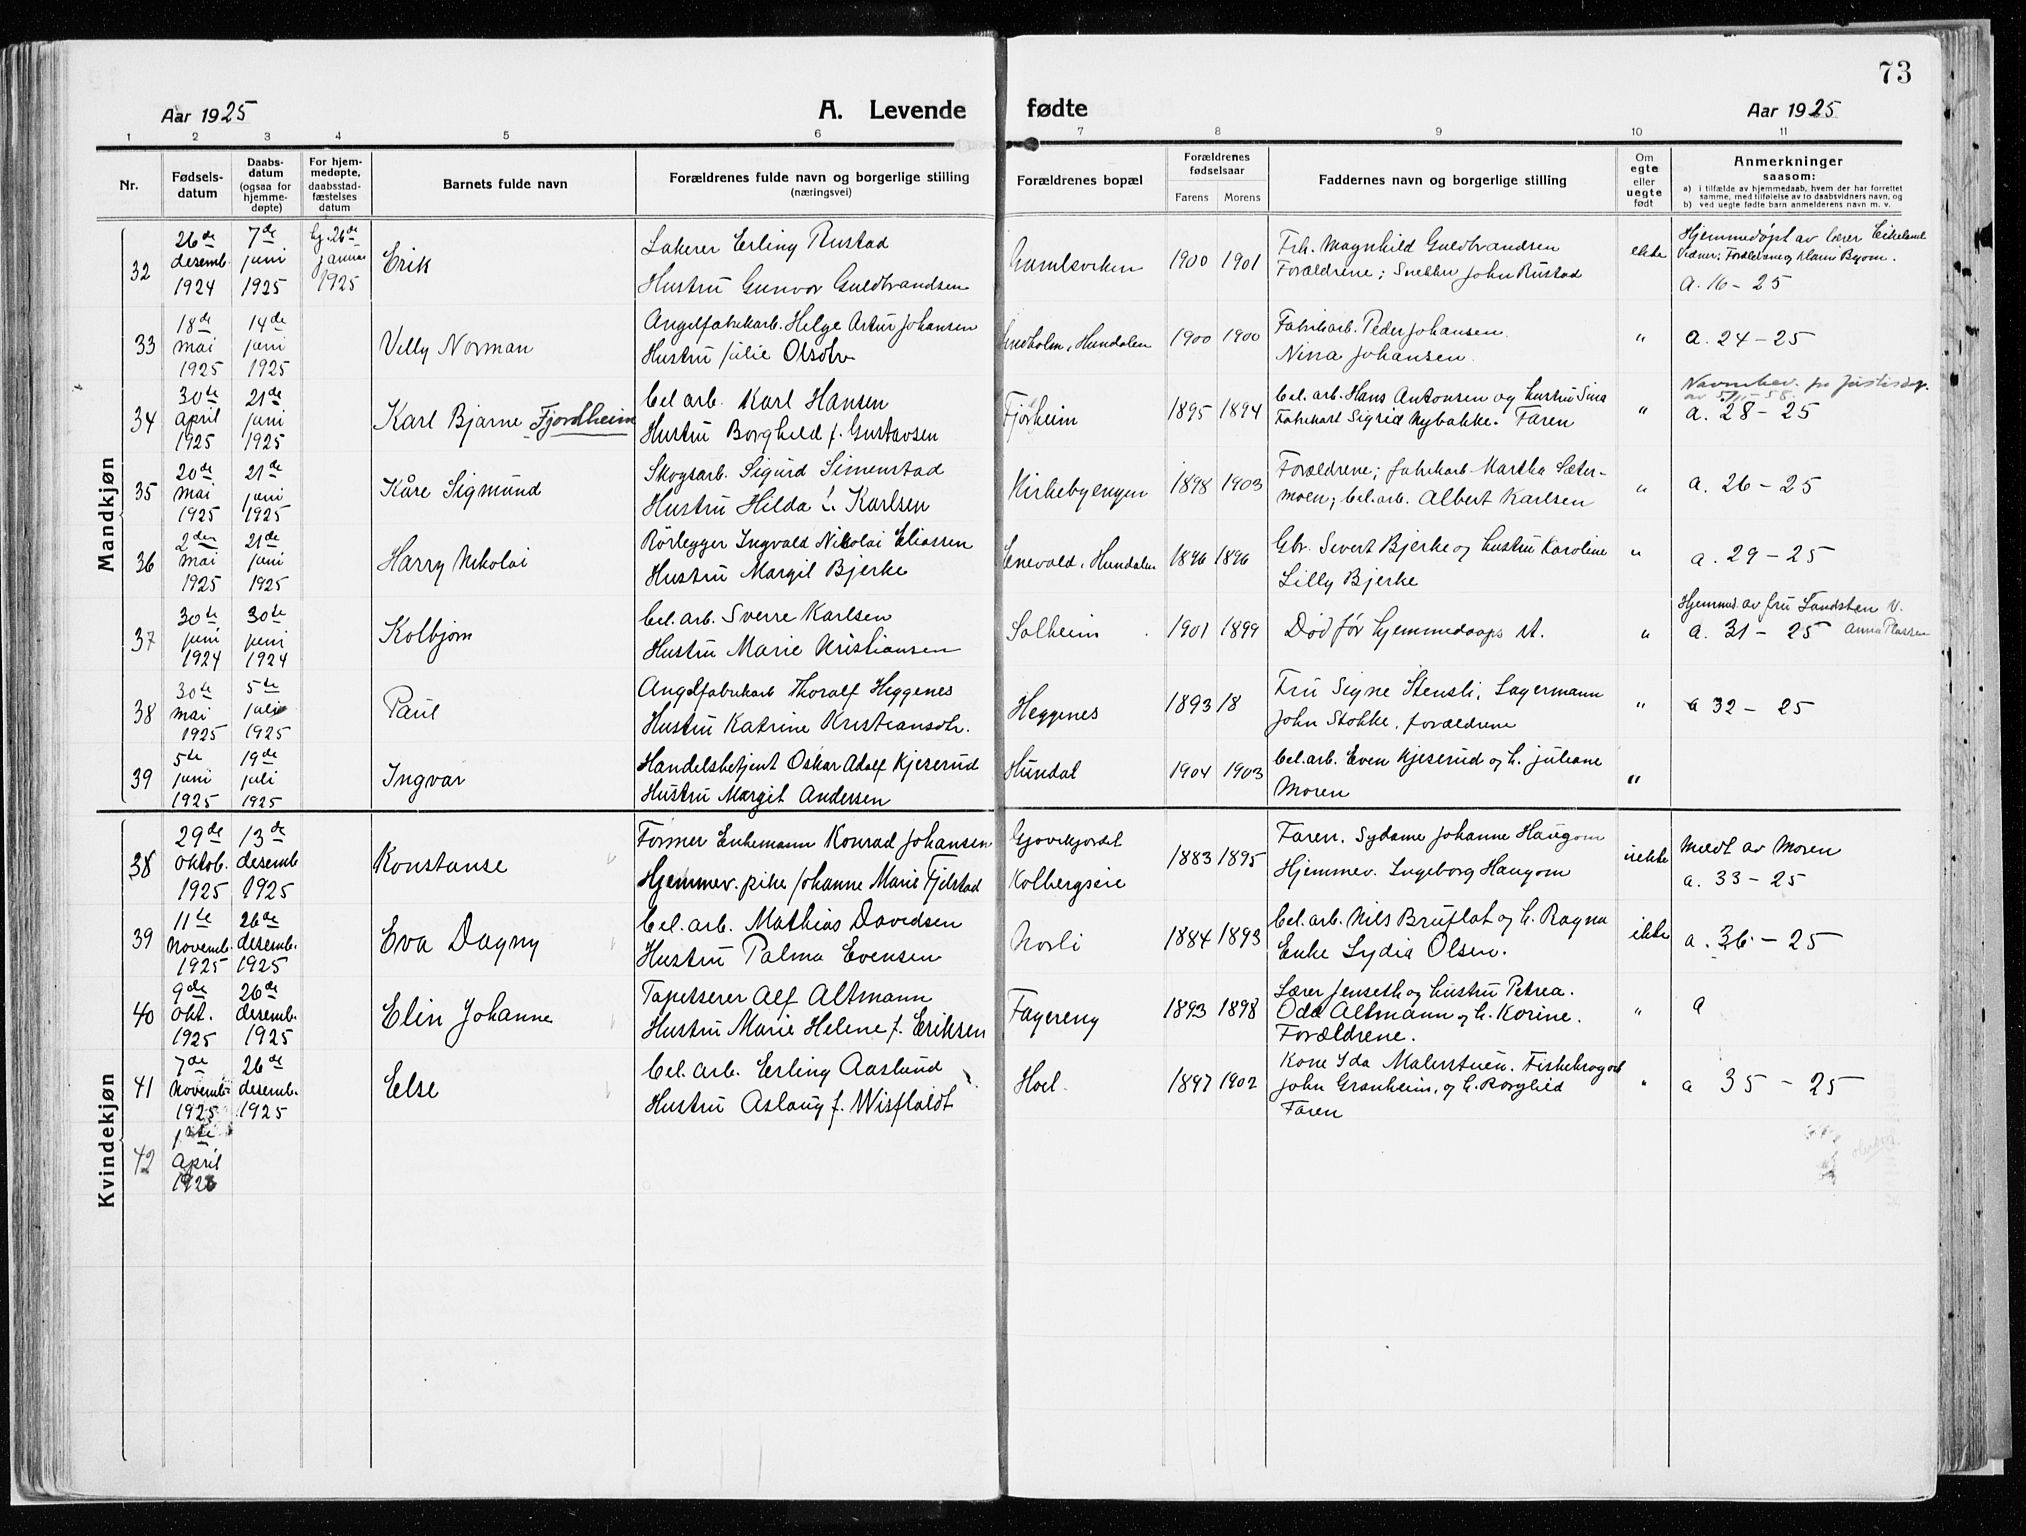 73
Aar 1925
A. Levende fødte
Aar 1925
1 2 3 4 5 6 7 8 9 10 11
Nr.
Fødsels-
datum
Daabs-
datum
(ogsaa for
hjemme-
døpte)
For hjem-
medøpte,
daabsstad-
fæstelses
datum
Barnets fulde navn
Forældrenes fulde navn og borgerlige stilling
(næringsvei)
Forældrenes bopæl
Forældrenes
fødselsaar
Farens Morens
Faddernes navn og borgerlige stilling
Om
egte
eller
uegte
født
Anmerkninger
saasom:
a) i tilfælde av hjemmedaab, hvem der har forrettet
samme, med tilføielse av to daabsvidners navn, og
b) ved uegte fødte barn anmelderens navn m. v.
Mandkjøn
32
26de
desemb.
1924
7de
juni
1925
hj. 26de
januar
1925
Erik
Lakerer Erling Rustad
Hustru Gunvor Guldbrandsen
Gamleveien
1900 1901
Frk. Magnhild Guldbrandsen
Forældrene; Snekker John Rustad
ekte
Hjemmedøpt av lærer Eikeland
Vidner; Forældrene og Klara Byom.
a. 16 - 25
33
18de
mai
1925
14de
juni
1925
Villy Norman
Angelfabrikarb. Helge Artur Johansen
Hustru Julie Olsdtr
Lindholm, Hundalen
1900 1900
Fabrikarb. Peder Johansen.
Nina Johansen.
"
a. 24 - 25
34
30te
April
1925
21de
juni
1925
Karl Bjarne Fjordheim
Cel. arb. Karl Hansen
Hustru Borghild f. Gustavsen
Fjorheim
1895 1894
Cel. arb. Hans Antonsen og hustru Sina
Fabrikarb Sigrid Nybakke. Faren
"
Navnebev. fra Justisdep.
av 5/1 - 58.
a. 28 - 25
35
20de
Mai
1925
21de
juni
1925
Kåre Sigmund
Skogsarb. Sigurd Simenstad
Hustru Hilda f. Karlsen
Kirkebyengen
1898 1903
Forældrene; fabrikarb. Martha Sæter-
moen; Cel. arb. Albert Karlsen
"
a. 26 - 25
36
2den
mai
1925
21de
juni
1925
Harry Nikolai
Rørlegger Ingvald Nikolai Eliassen
Hustru Margit Bjerke
Enevold, Hundalen
1896 1896
Gbr. Sivert Bjerke og hustru Karoline
Lilly Bjerke
"
a. 29 - 25
37
30te
juni
1924
30te
juni
1924
Kolbjørn
Cel. arb. Sverre Karlsen
Hustru Marie Kristiansen
Solheim
1901 1899
Død før hjemmedaaps st.
"
Hjemmed. av fru Sandsten V.
a. 31 - 25 Anna Plassen
38
30te
Mai
1925
5te
juli
1925
Paul
Angelfabrikarb Thoralf Heggenes
Hustru Katrine Kristiansdtr.
Heggenes
1893 18
Fru Signe Stensli, Lagermann
John Stokke, forældrene
"
a 32 - 25
39
5te
juni
1925
19de
juli
1925
Ingvar
Handelsbetjent Oskar Adolf Kjeserud
Hustru Margit Andersen
Hundal
1904 1903
Cel. arb. Even Kjeserud og h. Juliane
Moren
"
Kvindekjøn
38
29de
oktob.
1925
13de
desemb
1925
Konstanse
Former Enkemann Konrad Johansen
Hjemmev. pike Johanne Marie Fjelstad
Gjøvikjordet
Kolbergseie
1883 1895
Faren. Sydame Johanne Haugom
Hjemmev. Ingeborg Haugom
uekte
Meldt av Moren
a. 33 - 25
39
11te
Novemb.
1925
26de
desemb.
1925
Eva Dagny
Cel. arb. Mathias Davidsen
Hustru Palma Evensen
Norli
1884 1893
Cel. arb. Nils Bruflat og h. Ragna
Enke Lydia Olsen.
ekte
a. 36 - 25
40
9de
okt.
1925
26de
desemb.
1925
Elin Johanne
Tapetserer Alf Altmann
Hustru Marie Helene f. Eriksen
Fagereng
1893 1898
Lærer Jenseth og hustru Petrea.
Odd Altmann og h. Korine.
Forældrene.
"
a
41
7de
Novemb.
1925
26de
desemb.
1925
Else
Cel. arb. Erling Aaslund
Hustru Aslaug f. Wisfladt
Hoel
1897 1902
Kone Ida Malerstuen. Fiskekrogarb
John Granheim, og h. Borghild
Faren
"
a 35 - 25
42
1ste
April